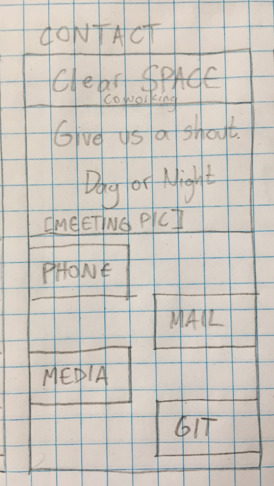 CONTACT
Clear SPACE
Coworking
Give us a shout.
Day or Night
[MEETING PIC]
PHONE
MAIL
MEDIA
GIT